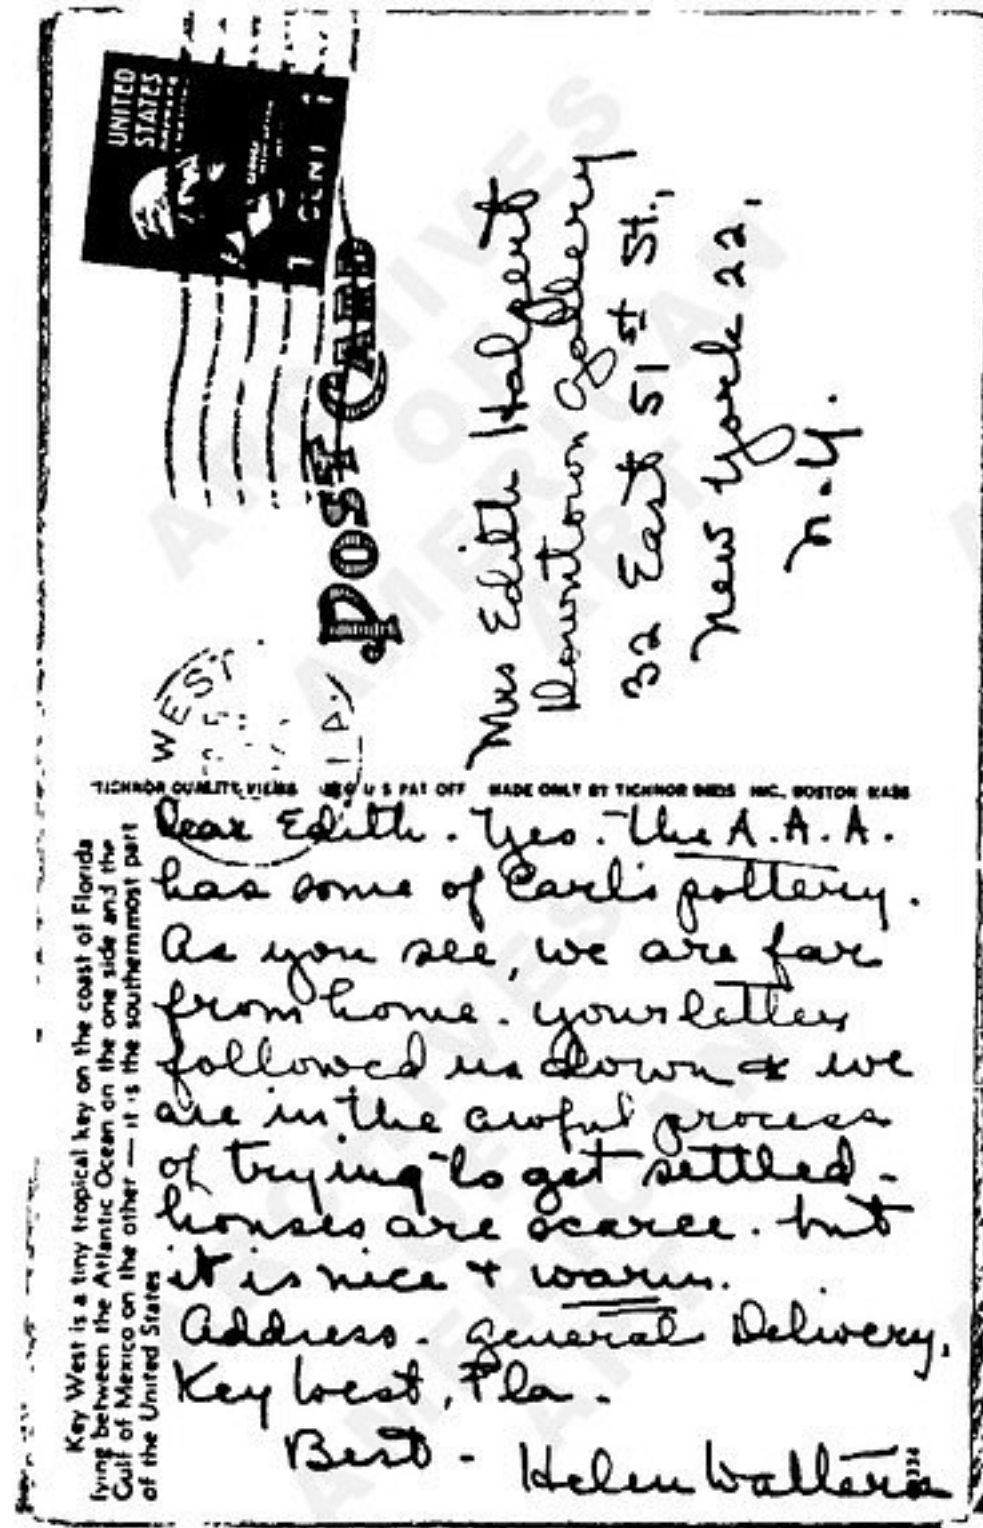 UNITED
STATES
1 CENT 1
POST CARD
WEST
Mrs Edith Halpert
Downtown Gallery
32 East 51st St.,
New York 22,
N.Y.
TICHNOR QUALITY VIEWS REG U S PAT OFF MADE ONLY BY TICHNOR BROS INC., BOSTON MASS
Key West is a tiny tropical key on the coast of Florida
lying between the Atlantic Ocean on the one side and the
Gulf of Mexico on the other — it is the southernmost part
of the United States
Dear Edith. Yes. The A.A.A.
has some of Carl's pottery.
As you see, we are far
from home. Your letter
followed us down & we
are in the awful process
of trying to get settled -
houses are scarce. but
it is nice & warm.
Address - General Delivery,
Key West, Fla -
Best - Helen Walters
ARCHIVES
OF
AMERICAN
ART
ARCHIVES
OF
AMERICAN